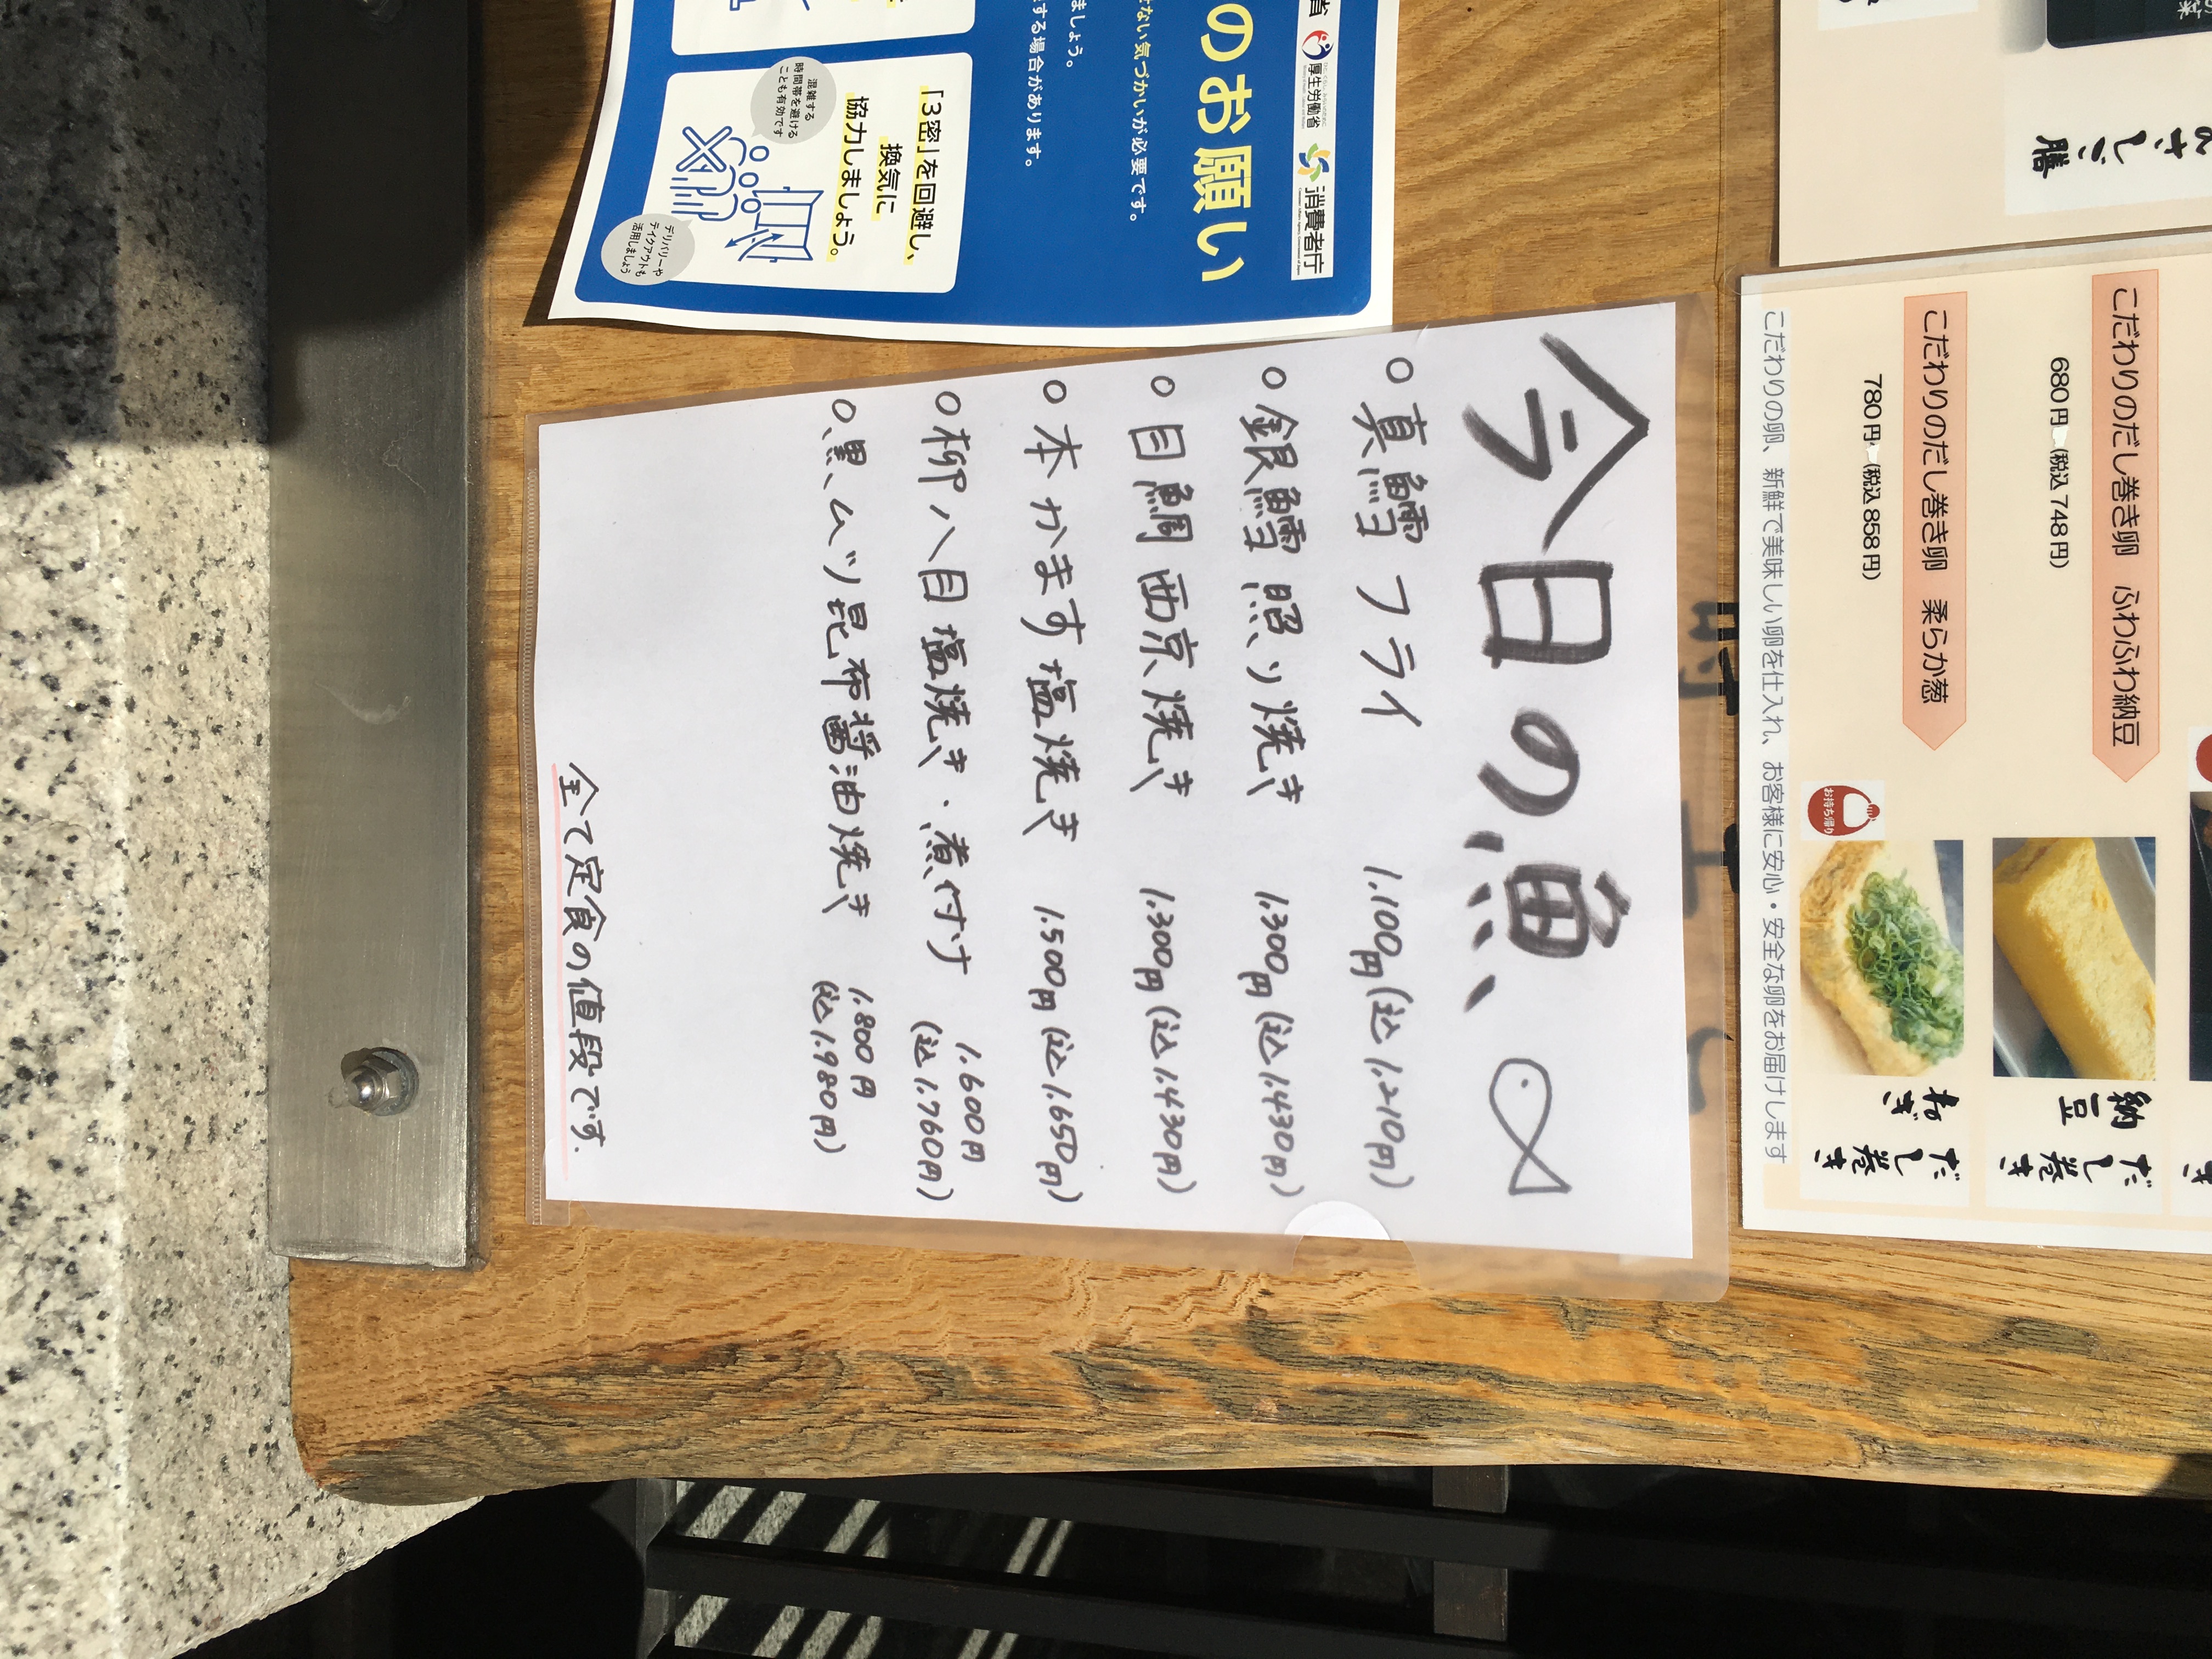 省 厚生労働省 消費者庁
のお願い
ない気づかいが必要です。
ましょう。
する場合があります。
「3密」を回避し、
換気に
協力しましょう。
混雑する
時間帯を避ける
ことも有効です
デリバリーや
テイクアウトも
活用しましょう
こだわりのだし巻き卵 ふわふわ納豆
680円 (税込 748円)
納豆
だし巻き
こだわりのだし巻き卵 柔らか葱
780円 (税込 858円)
お持ち帰り
ねぎ
だし巻き
こだわりの卵、新鮮で美味しい卵を仕入れ、お客様に安心・安全な卵をお届けします
今日の魚
○真鱈フライ 1.100円(込1.210円)
○銀鱈照り焼き 1.300円(込1.430円)
○目鯛西京焼き 1.300円(込1.430円)
○本かます塩焼き 1.500円(込1.650円)
○柳八目塩焼き・煮付け 1.600円
(込1.760円)
○黒ムツ昆布醤油焼き 1.800円
(込1.980円)
全て定食の値段です.